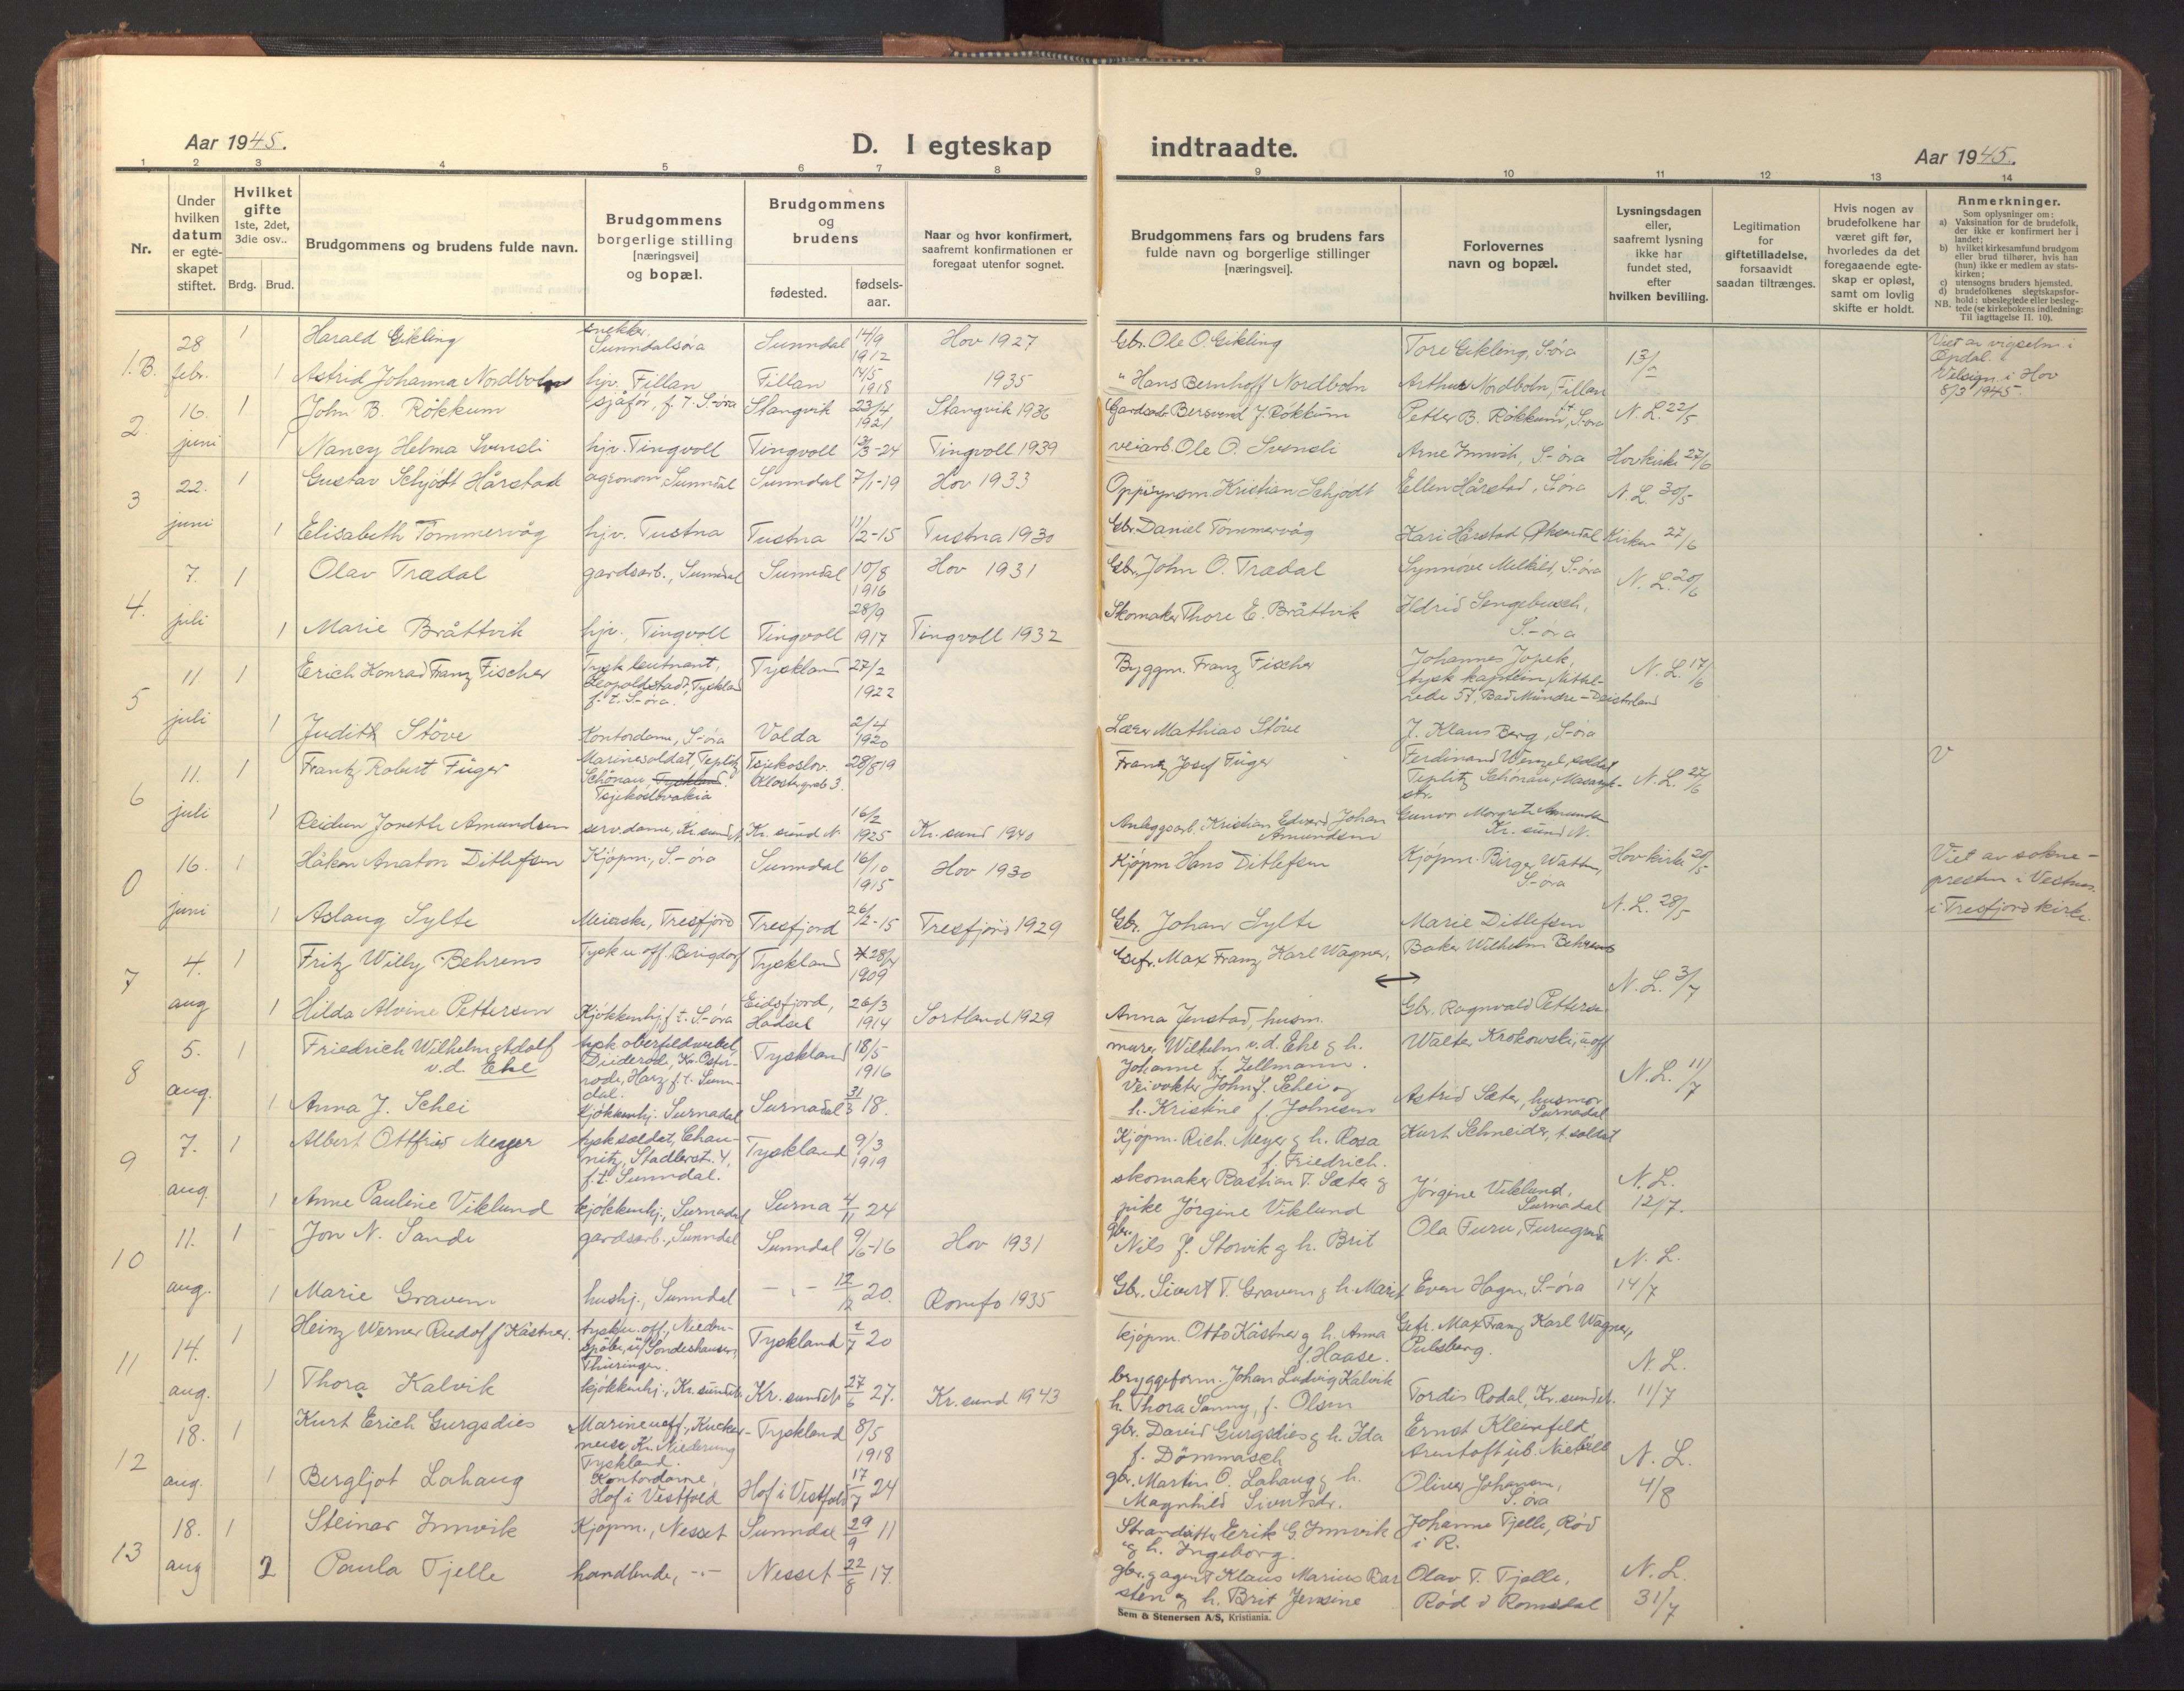 Aar 1945.
D. I egteskap indtraadte.
Aar 1945.
1 2 3 4 5 6 7 8 9 10 11 12 13 14
Nr.
Under hvilken datum er egteskapet stiftet.
Hvilket gifte 1ste, 2det, 3die osv..
Brdg. Brud.
Brudgommens og brudens fulde navn.
Brudgommens borgerlige stilling [næringsvei] og bopæl.
Brudgommens og brudens
fødested.
fødsels-aar.
Naar og hvor konfirmert, saafremt konfirmationen er foregaat utenfor sognet.
Brudgommens fars og brudens fars fulde navn og borgerlige stillinger [næringsvei].
Forlovernes navn og bopæl.
Lysningsdagen eller, saafremt lysning ikke har fundet sted, efter hvilken bevilling.
Legitimation for giftetilladelse, forsaavidt saadan tiltrænges.
Hvis nogen av brudefolkene har været gift før, hvorledes da det foregaaende egteskap er opløst, samt om lovlig skifte er holdt.
Anmerkninger.
Som oplysninger om:
a) Vaksination for de brudefolk, der ikke er konfirmert her i landet;
b) hvilket kirkesamfund brudgom eller brud tilhører, hvis han (hun) ikke er medlem av statskirken;
c) utensogns bruders hjemsted.
d) brudefolkenes slegtskapsforhold: ubeslegtede eller beslegtede (se kirkebokens indledning: Til iagttagelse II. 10).
NB.
1.B. 28 febr. 1 Harald Gikling snekker, Sunndalsøra Sunndal 14/9 1912 Hov 1927 Gbr. Ole O. Gikling Tore Gikling, S-øra 13/2 Viet av vigselm. i Opdal. Velsign. i Hov 8/3 1945.
1 Astrid Johanna Nordbotn hjv. Fillan Fillan 14/5 1918 1935 " Hans Bernhoff Nordbotn Arthur Nordbotn, Fillan
2. 16. juni 1 John B. Røkkum sjåfør, f.t. S-øra Stangvik 23/4 1921 Stangvik 1936 Gardsarb. Bersvend J. Røkkum Petter B. Røkkum, f.t. S-øra N.L. 22/5
1 Nancy Helma Svendli hjv. Tingvoll Tingvoll 13/3-24 Tingvoll 1939 veiarb. Ole O. Svendli Arne Innvik, S-øra Hov kirke 27/6
3 22. juni 1 Gustav Schjødt Hårstad agronom Sunndal Sunndal 7/1-19 Hov 1933 Oppsynsm. Kristian Schjødt Ellen Hårstad, S-øra N.L. 30/5
1 Elisabeth Tømmervåg hjv. Tustna Tustna 11/2-15 Tustna 1930 Gbr. Daniel Tømmervåg Kari Hårstad, Øksendal Kirken 27/6
4. 7. juli 1 Olav Trædal gardsarb., Sunndal Sunndal 10/8 1916 Hov 1931 Gbr. John O. Trædal Synnøve Melkild, S-øra N.L. 20/6
1 Marie Bråttvik hjv., Tingvoll Tingvoll 28/9 1917 Tingvoll 1932 Skomaker Thore E. Bråttvik Ildrid Sengebusch, S-øra
5 11 juli 1 Erich Konrad Franz Fischer Tysk leutnant, Leopoldstadt, Tyskland f.t. S-øra. Tyskland 27/2 1922 Byggm. Franz Fischer Johannes Jopek, tysk kaptein, Nettelrede 57, Bad Münder-Deisterland N.L. 17/6
1 Judith Støve Kontordame, S-øra Volda 2/4 1920 Lærer Mathias Støve J. Klaus Berg, S-øra
6 11. juli 1 Frantz Robert Füger Marinesoldat, Teplitz Schönau, Tyskland. Tsjekoslovakia Tsjekoslov. Klostergrab 3. 28/8-19 Franz Josef Füger Ferdinand Wenzel, soldat Teplitz Schönau, Masarykstr. N.L. 27/6 V
1 Reidun Joreth Amundsen serv.dame, Kr.sund N. Kr. sund N. 16/2 1925 Kr. sund 1940 Anleggsarb. Kristian Edvard Johan Amundsen Gunvor Margrete Amundsen Kr. sund N.
0 16. juni 1 Håkon Anaton Ditlefsen Kjøpm., S.-øra Sunndal 16/10 1915 Hov 1930 Kjøpm Hans Ditlefsen Kjøpm. Birger Watten, S-øra Hov kirke 20/5 Viet av sokne-presten i Vestnes i Tresfjord kirke.
1 Aslaug Sylte Meierske, Tresfjord Tresfjord 26/12-15 Tresfjord 1929 Gbr. Johan Sylte Marie Ditlefsen N.L. 28/5
7 4. aug 1 Fritz Willy Behrens Tysk u.off. Tyskland 28/4 1909 Gefr. Max Franz Karl Wagner, ↔ Baker Wilhelm Behrens N.L. 3/7
1 Hilda Alvine Pettersen Kjøkkenhj, f.t. S-øra Eidsfjord, Hadsel 26/3 1914 Sortland 1929 Anna Jenstad, husm. Gbr. Ragnvald Pettersen
8 5. aug. 1 Friedrich Wilhelm Adolf v.d. Ehe tysk oberfeldwebel, Düderode, Kr. Osterrode, Harz f.t. Sunndal. Tyskland 18/5 1916 murer Wilhelm v.d. Ehe g h. Johanne f. Zellmann. Walter Krokowski, u.off N.L. 11/7
1 Anna J. Schei kjøkkenhj. Surnadal Surnadal 31/3 18. Veivokter John J. Schei og h. Kristine f. Johnsen Astrid Sæter, husmor Surnadal
9 7. aug. 1 Albert Ottfried Meyer tysk soldat, Chaunitz, Stadlerst. 4, f.t. Sunndal. Tyskland 9/3 1919 Kjøpm. Rich. Meyer g h. Rosa f. Friedrich. Kurt Schneider, t. soldat N.L. 12/7.
1 Anne Pauline Viklund kjøkkenhj., Surnadal Surna 4/11 24 skomaker Bastian T. Sæter g pike Jørgine Viklund Jørgine Viklund, Surnadal
10 11. aug. 1 Jon N. Sande gardsarb., Sunndal Sunndal 9/6-16 Hov 1931 gbr. Nils J. Storvik g h. Brit Ola Furu, Furugrend N.L. 14/7
1 Marie Gravem hushj., Sunndal - " - 12/12 20. Romfo 1935 Gbr. Sivert T. Gravem g h. Marit Even Hagen, S-øra
11 14. aug. 1 Heinz Werner Rudolf Kästner. tysk u.off., Niederspier, ü/Sondeshausen, Thüringen. Tyskland 1/7 20 kjøpm. Otto Kästner g h. Anna f. Haase. Gefr. Max Franz Karl Wagner, Pulsberg. N.L. 11/7
1 Thora Kalvik kjøkkenhj., Kr.sund N. Kr. sund N 27/6 27. Kr. sund 1943 bryggeform. Johan Ludvig Kalvik h. Thora Sanny, f. Olsen Tordis Rodal, Kr. sund N.
12 18. aug. 1 Kurt Erich Gurgsdies Marineuoff., Kuckerneise, Kr. Niederung Tyskland. Tyskland 8/5 1918 gbr. David Gurgsdies g h. Ida f. Dömmasch Ernst Kleinfeld Arentoft üb. Niebüll N.L. 4/8
1 Bergljot Lahaug Kontordame, Hof i Vestfold Hof i Vestfold 17/7 24 gbr. Martin O. Lahaug g h. Magnhild Sivertsdr. Oliver Johansen, S.øra
13 18. aug 1 Steinar Innvik Kjøpm., Nesset Sunndal 29/9 11 Strandsitter Erik G. Innvik g h. Ingeborg. Johanne Tjelle, Rød i R. N.L. 31/7
2 Paula Tjelle handlende, -"- Nesset 22/8 17. gbr. g agent Klaus Marius Barsten g h. Brit Jensine Olav T. Tjelle, Rød i Romsdal
Sem & Stenersen A/S, Kristiania.